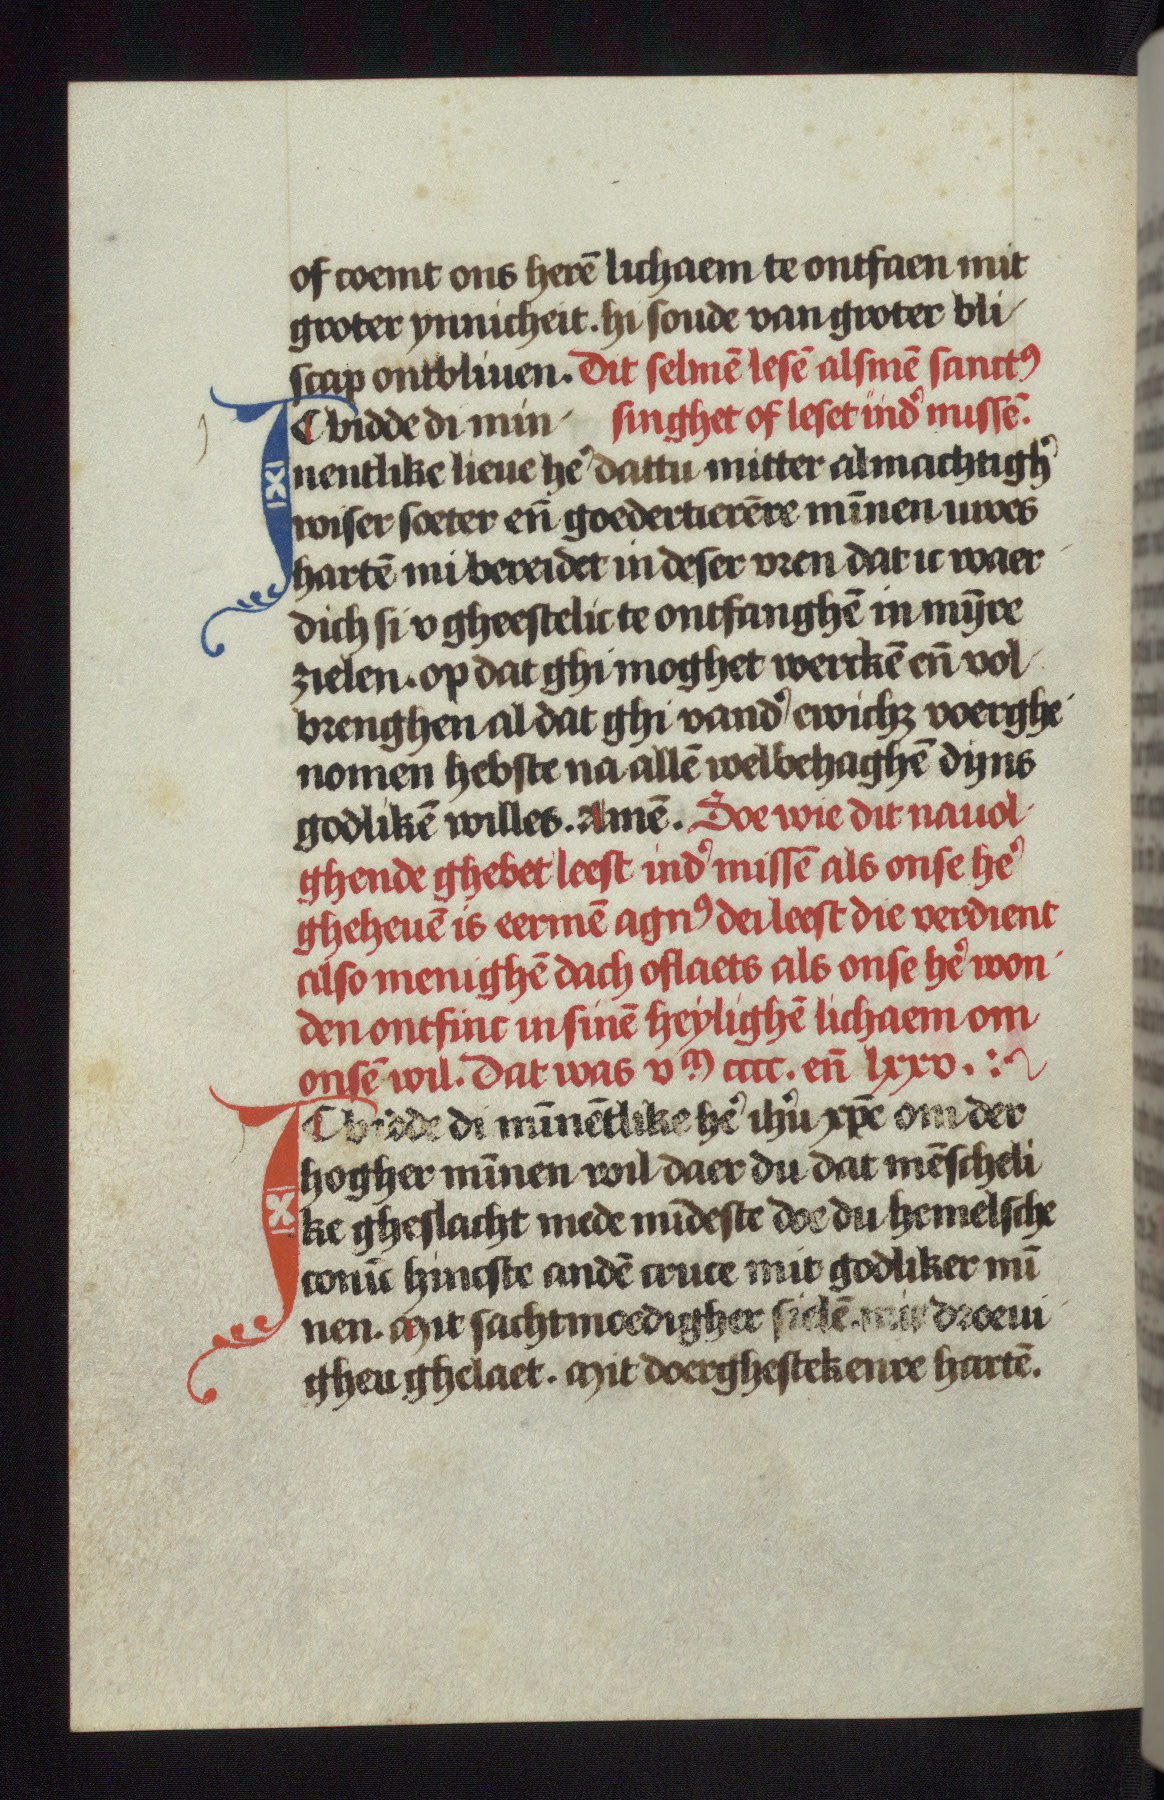 of coemt ons herē lichaem te ontfaen mit
groter ynnicheit. hi soude van groter bli
scap ontbliuen. Dit selmē lesē alsmē sanctꝰ
IC bidde di min singhet of leset indˀ missē.
nentlike lieue heˀ dattu mitter almachtighˀ
wiser soeter eñ goedertierēre mīnen uwes
hartē mi bereidet in deser vren dat ic waer
dich si v gheestelic te ontfanghē in mȳre
zielen. op dat ghi moghet werckē eñ vol
brenghen al dat ghi vandˀ ewichꝫ voerghe
nomen hebste na allē welbehaghē dijns
godlikē willes. Amē. Soe wie dit nauol
ghende ghebet leest indˀ missē als onse heˀ
gheheuē is eermē agnꝰ dei leest die verdient
also menighē dach oflaets als onse heˀ won
den ontfinc in sinē heylighē lichaem om
onsē wil. Dat was vᵐ cccc. eñ lxxv.
IC bidde di mīnētlike heˀ ihˀu xpē om der
hogher mīnen wil daer du dat mēscheli
ke gheslacht mede mīdeste doe du hemelsche
conīc hincste andē cruce mit godliker mī
nen. Mit sachtmoedigher sielē. mit droeui
gheu ghelaet. Mit doerghestekenre hartē.